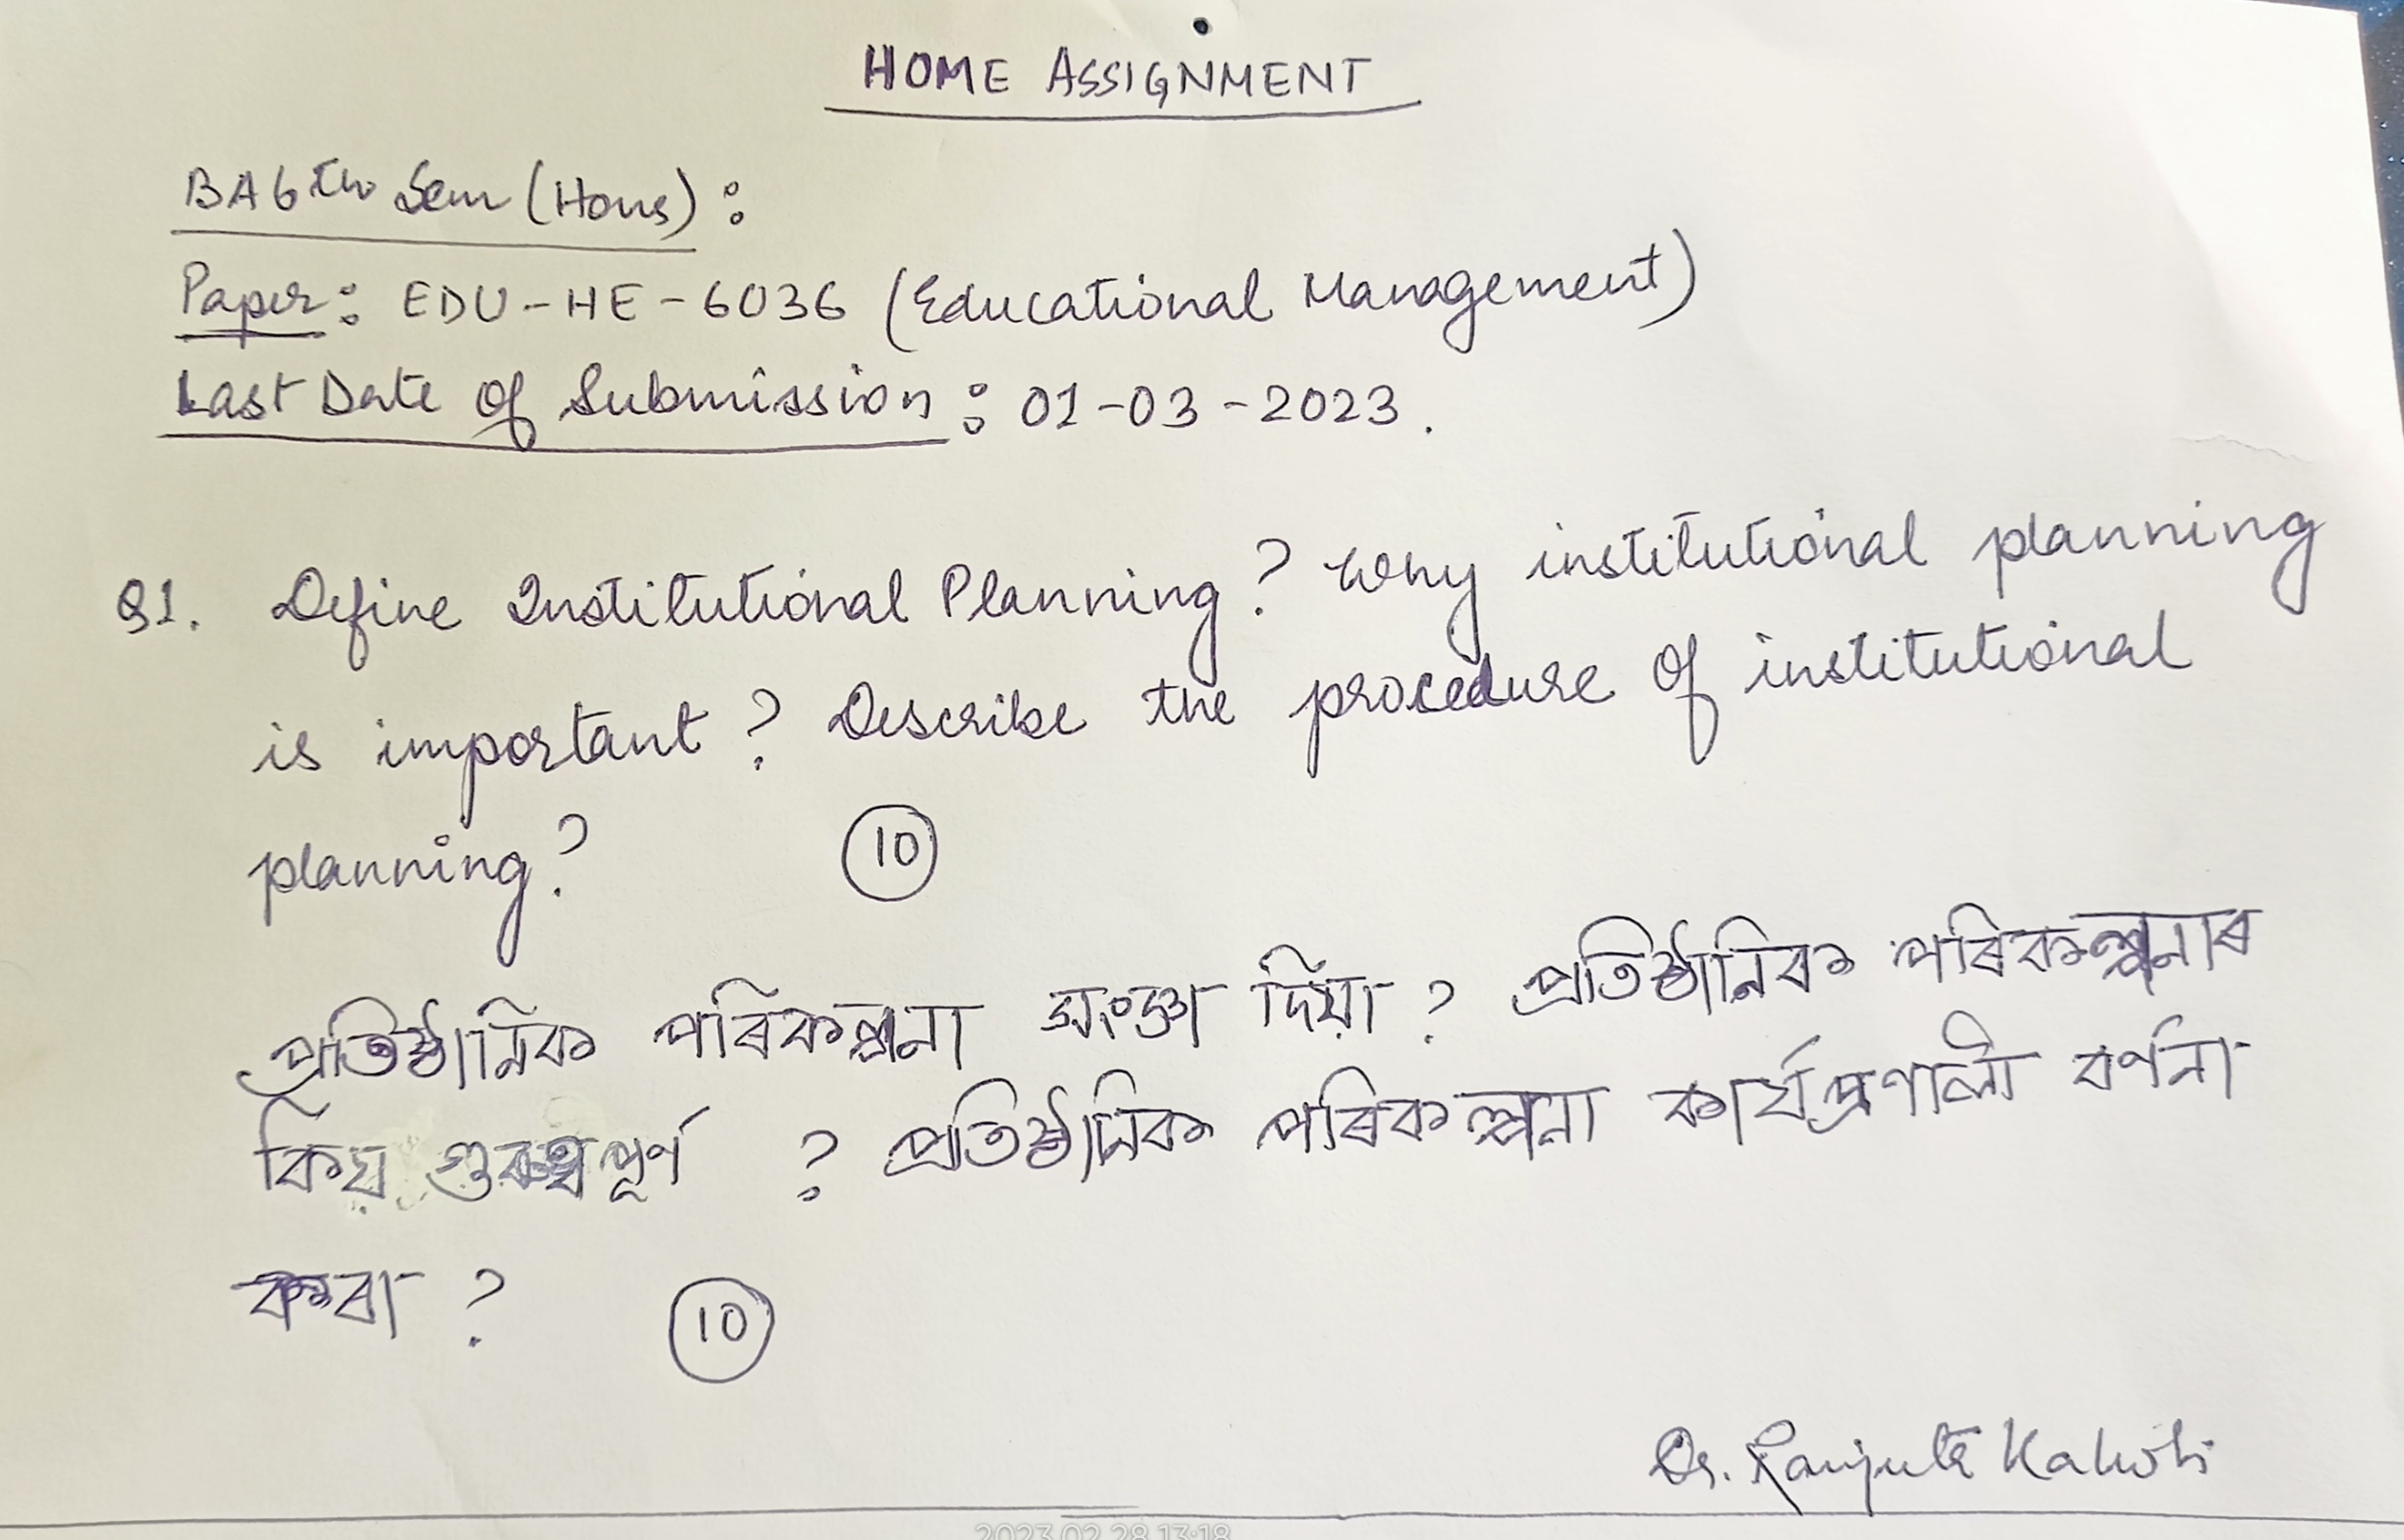 HOME ASSIGNMENT
BA 6th Sem (Hons) :
Paper : EDU-HE-6036 (Educational Management)
Last Date of Submission : 01-03-2023.
Q1. Define Institutional Planning? Why institutional planning
is important? Describe the procedure of institutional
planning? 10
প্ৰতিষ্ঠানিক পৰিকল্পনা সংজ্ঞা দিয়া ? প্ৰতিষ্ঠানিক পৰিকল্পনাৰ
কিয় গুৰুত্বপূৰ্ণ ? প্ৰতিষ্ঠানিক পৰিকল্পনা কাৰ্যপ্ৰণালী বৰ্ণনা
কৰা ? 10
Dr.
2023.02.28 13:18